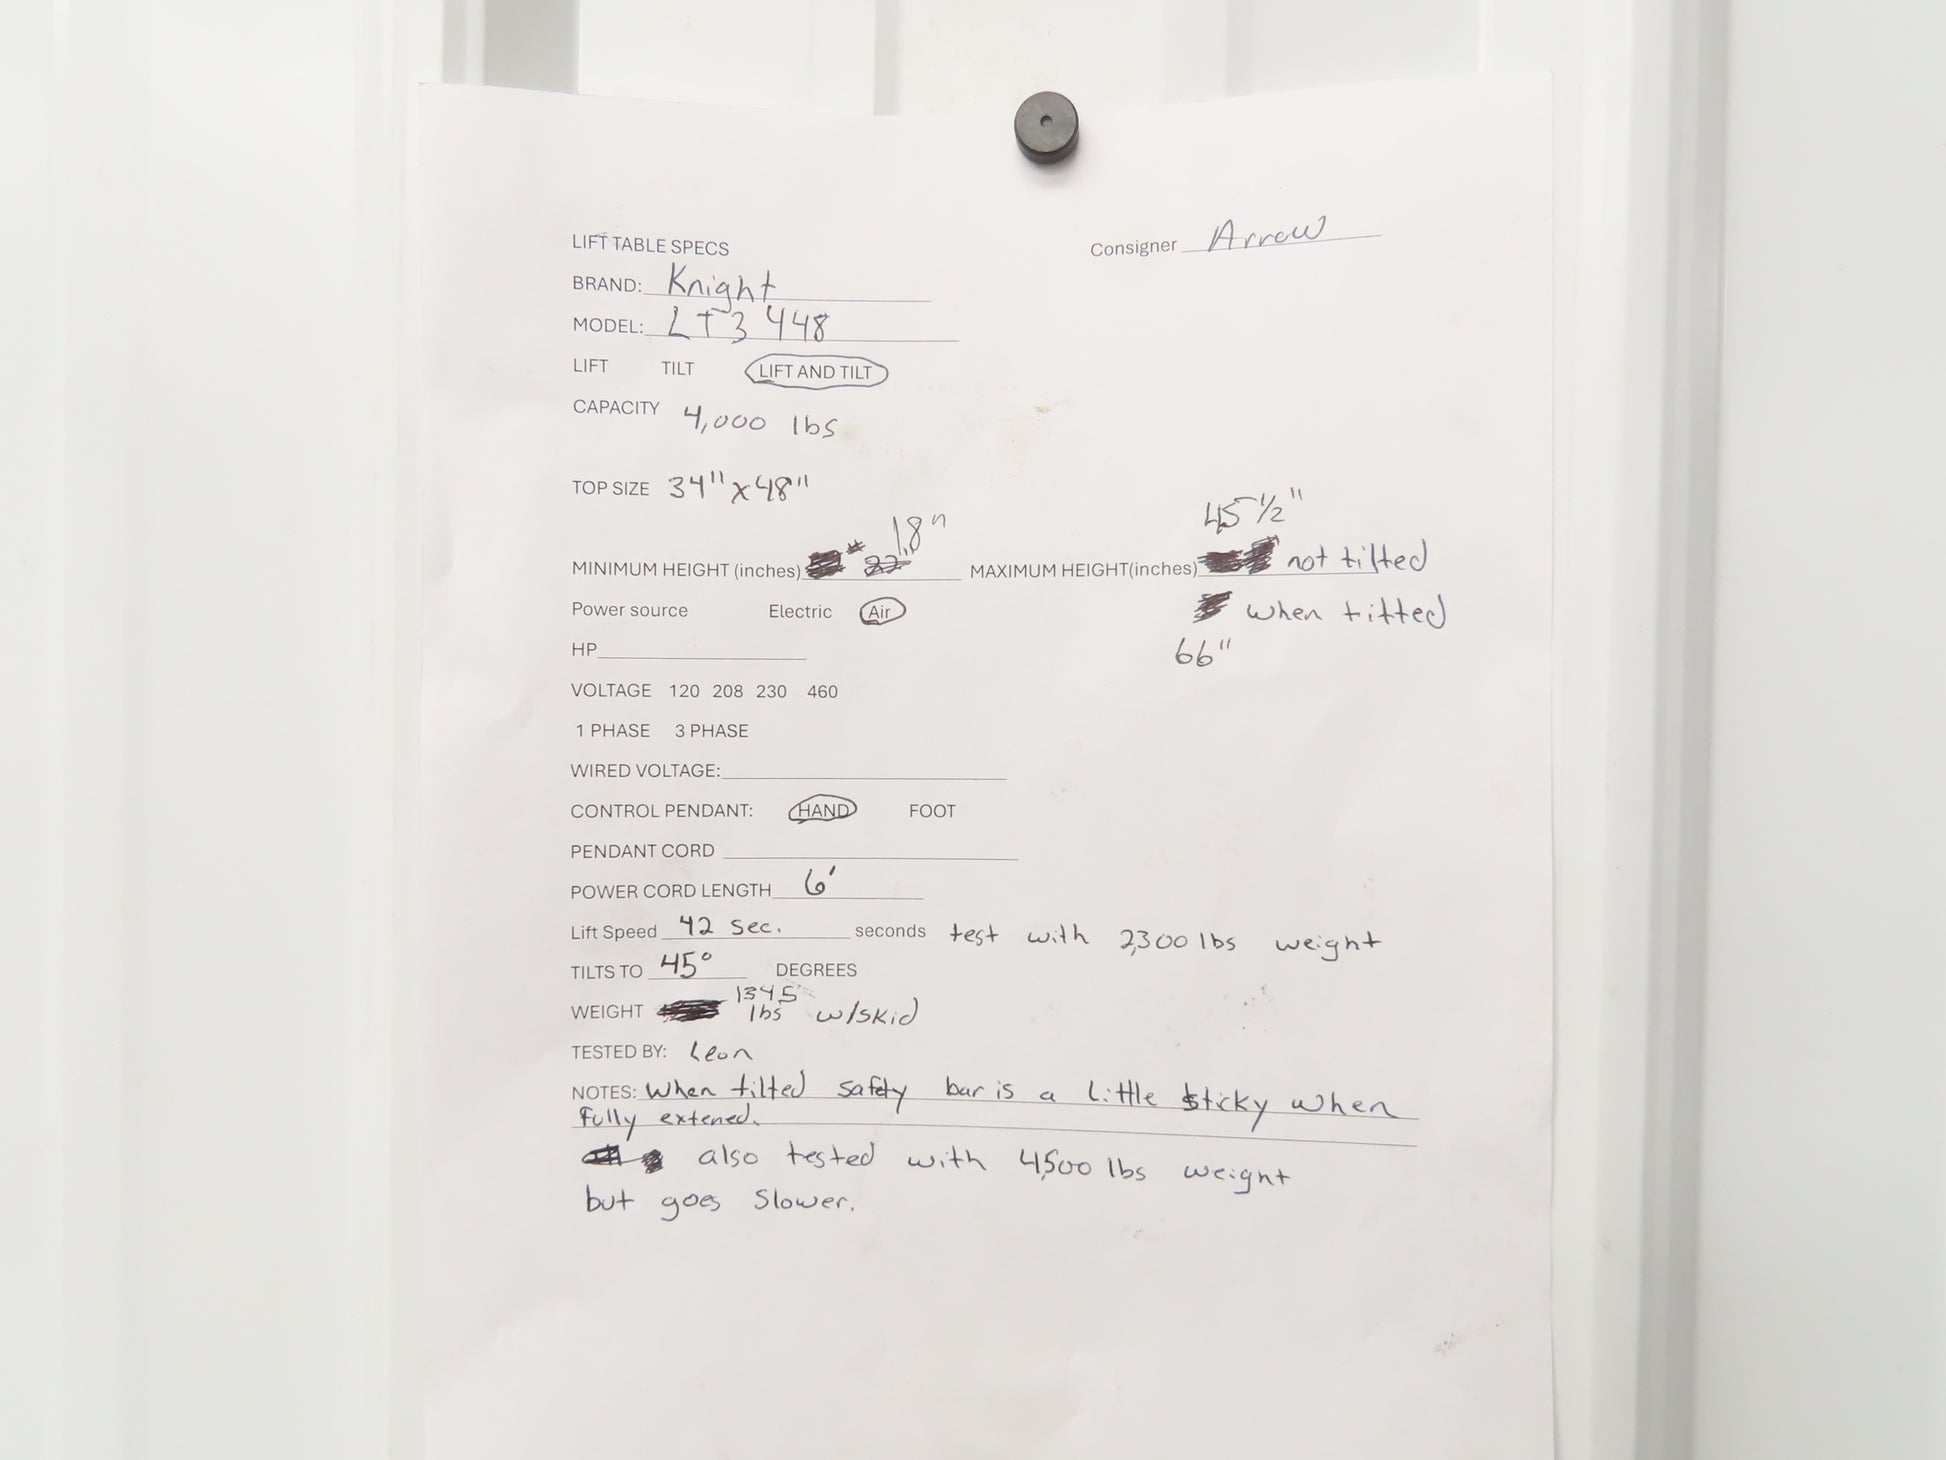 LIFT TABLE SPECS Consigner Arrow
BRAND: Knight
MODEL: LT3448
LIFT TILT LIFT AND TILT
CAPACITY 4,000 lbs
TOP SIZE 34" x 48"
18" 45 1/2"
MINIMUM HEIGHT (inches) 22" MAXIMUM HEIGHT(inches) not tilted
Power source Electric Air when tilted
HP 66"
VOLTAGE 120 208 230 460
1 PHASE 3 PHASE
WIRED VOLTAGE:
CONTROL PENDANT: HAND FOOT
PENDANT CORD
POWER CORD LENGTH 6'
Lift Speed 42 sec. seconds test with 2,300 lbs weight
TILTS TO 45° DEGREES
WEIGHT 1345 lbs w/skid
TESTED BY: Leon
NOTES: When tilted safety bar is a little sticky when
fully extened.
also tested with 4,500 lbs weight
but goes slower.